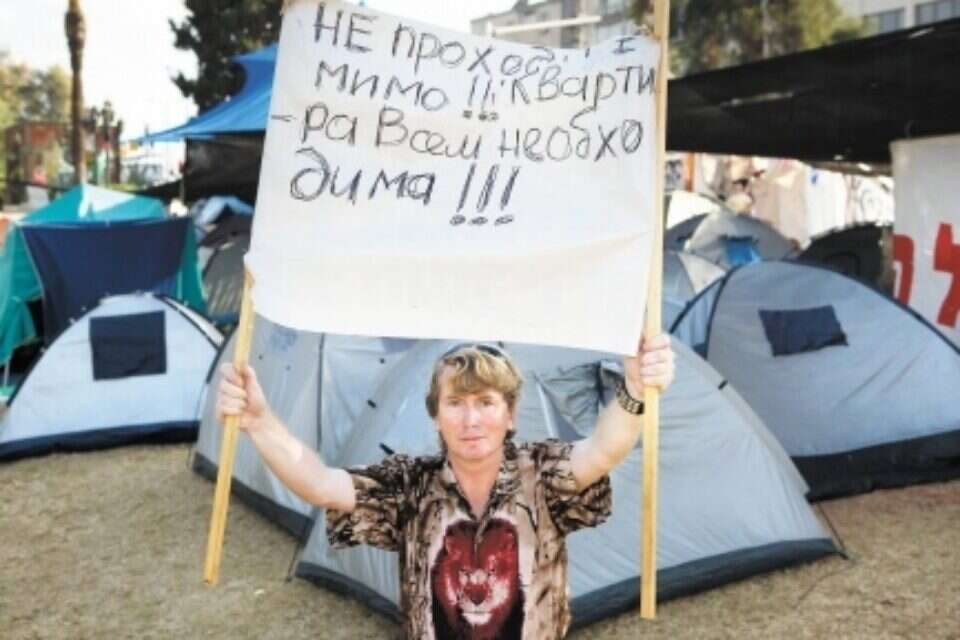 НЕ ПРОХОДИ
МИМО!!! КВАРТИ
-РА ВСЕМ НЕОБХО
ДИМА!!!
ל